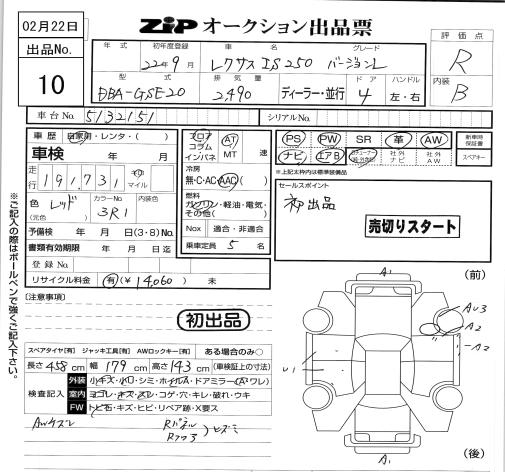 02月22日
出品No.
10
ZIP オークション出品票
評価点
R
内装
B
年式 初年度登録 車名 グレード
22年9月 レクサス IS250 バージョンL
型式 排気量 ドア ハンドル
DBA-GSE20 2,490 ディーラー・並行 4 左・右
車台No. 5132151
シリアルNo.
車歴 自家用・レンタ・( )
車検 年 月
走行 191,731 マイル
色 レッド
(元色)
カラーNo. 3R1
内装色
予備検 年 月 日(3・8)No.
書類有効期限 年 月 日迄
登録No.
リサイクル料金 有(¥14,060) 未
フロア
コラム
インパネ
AT
MT 速
冷房
無・C・AC・AAC
燃料
ガソリン・軽油・電気・
その他( )
Nox 適合・非適合
乗車定員 5 名
PS PW SR 革 AW
ナビ エアB
社外ナビ
社外AW
新車時保証書
スペアキー
※上記太枠内は標準装備品
セールスポイント
初出品
売切りスタート
※ご記入の際はボールペンで強くご記入下さい。
[注意事項]
初出品
スペアタイヤ[有] ジャッキ工具[有] AWロックキー[有] ある場合のみ○
長さ 458 cm 幅 179 cm 高さ 143 cm (車検証上の寸法)
検査記入
外装 小キズ・小凹・シミ・ホイルA・ドアミラー(A・ワレ)
室内 ヨゴレ・キズ・スレ・コゲ・穴・キレ・破れ・ウキ
FW トビ石・キズ・ヒビ・リペア跡・X要ス
AWケズレ
Rパネル
Rフロア
ヒズミ
(前)
A1
AU3
A2
A2
U1
A1
(後)